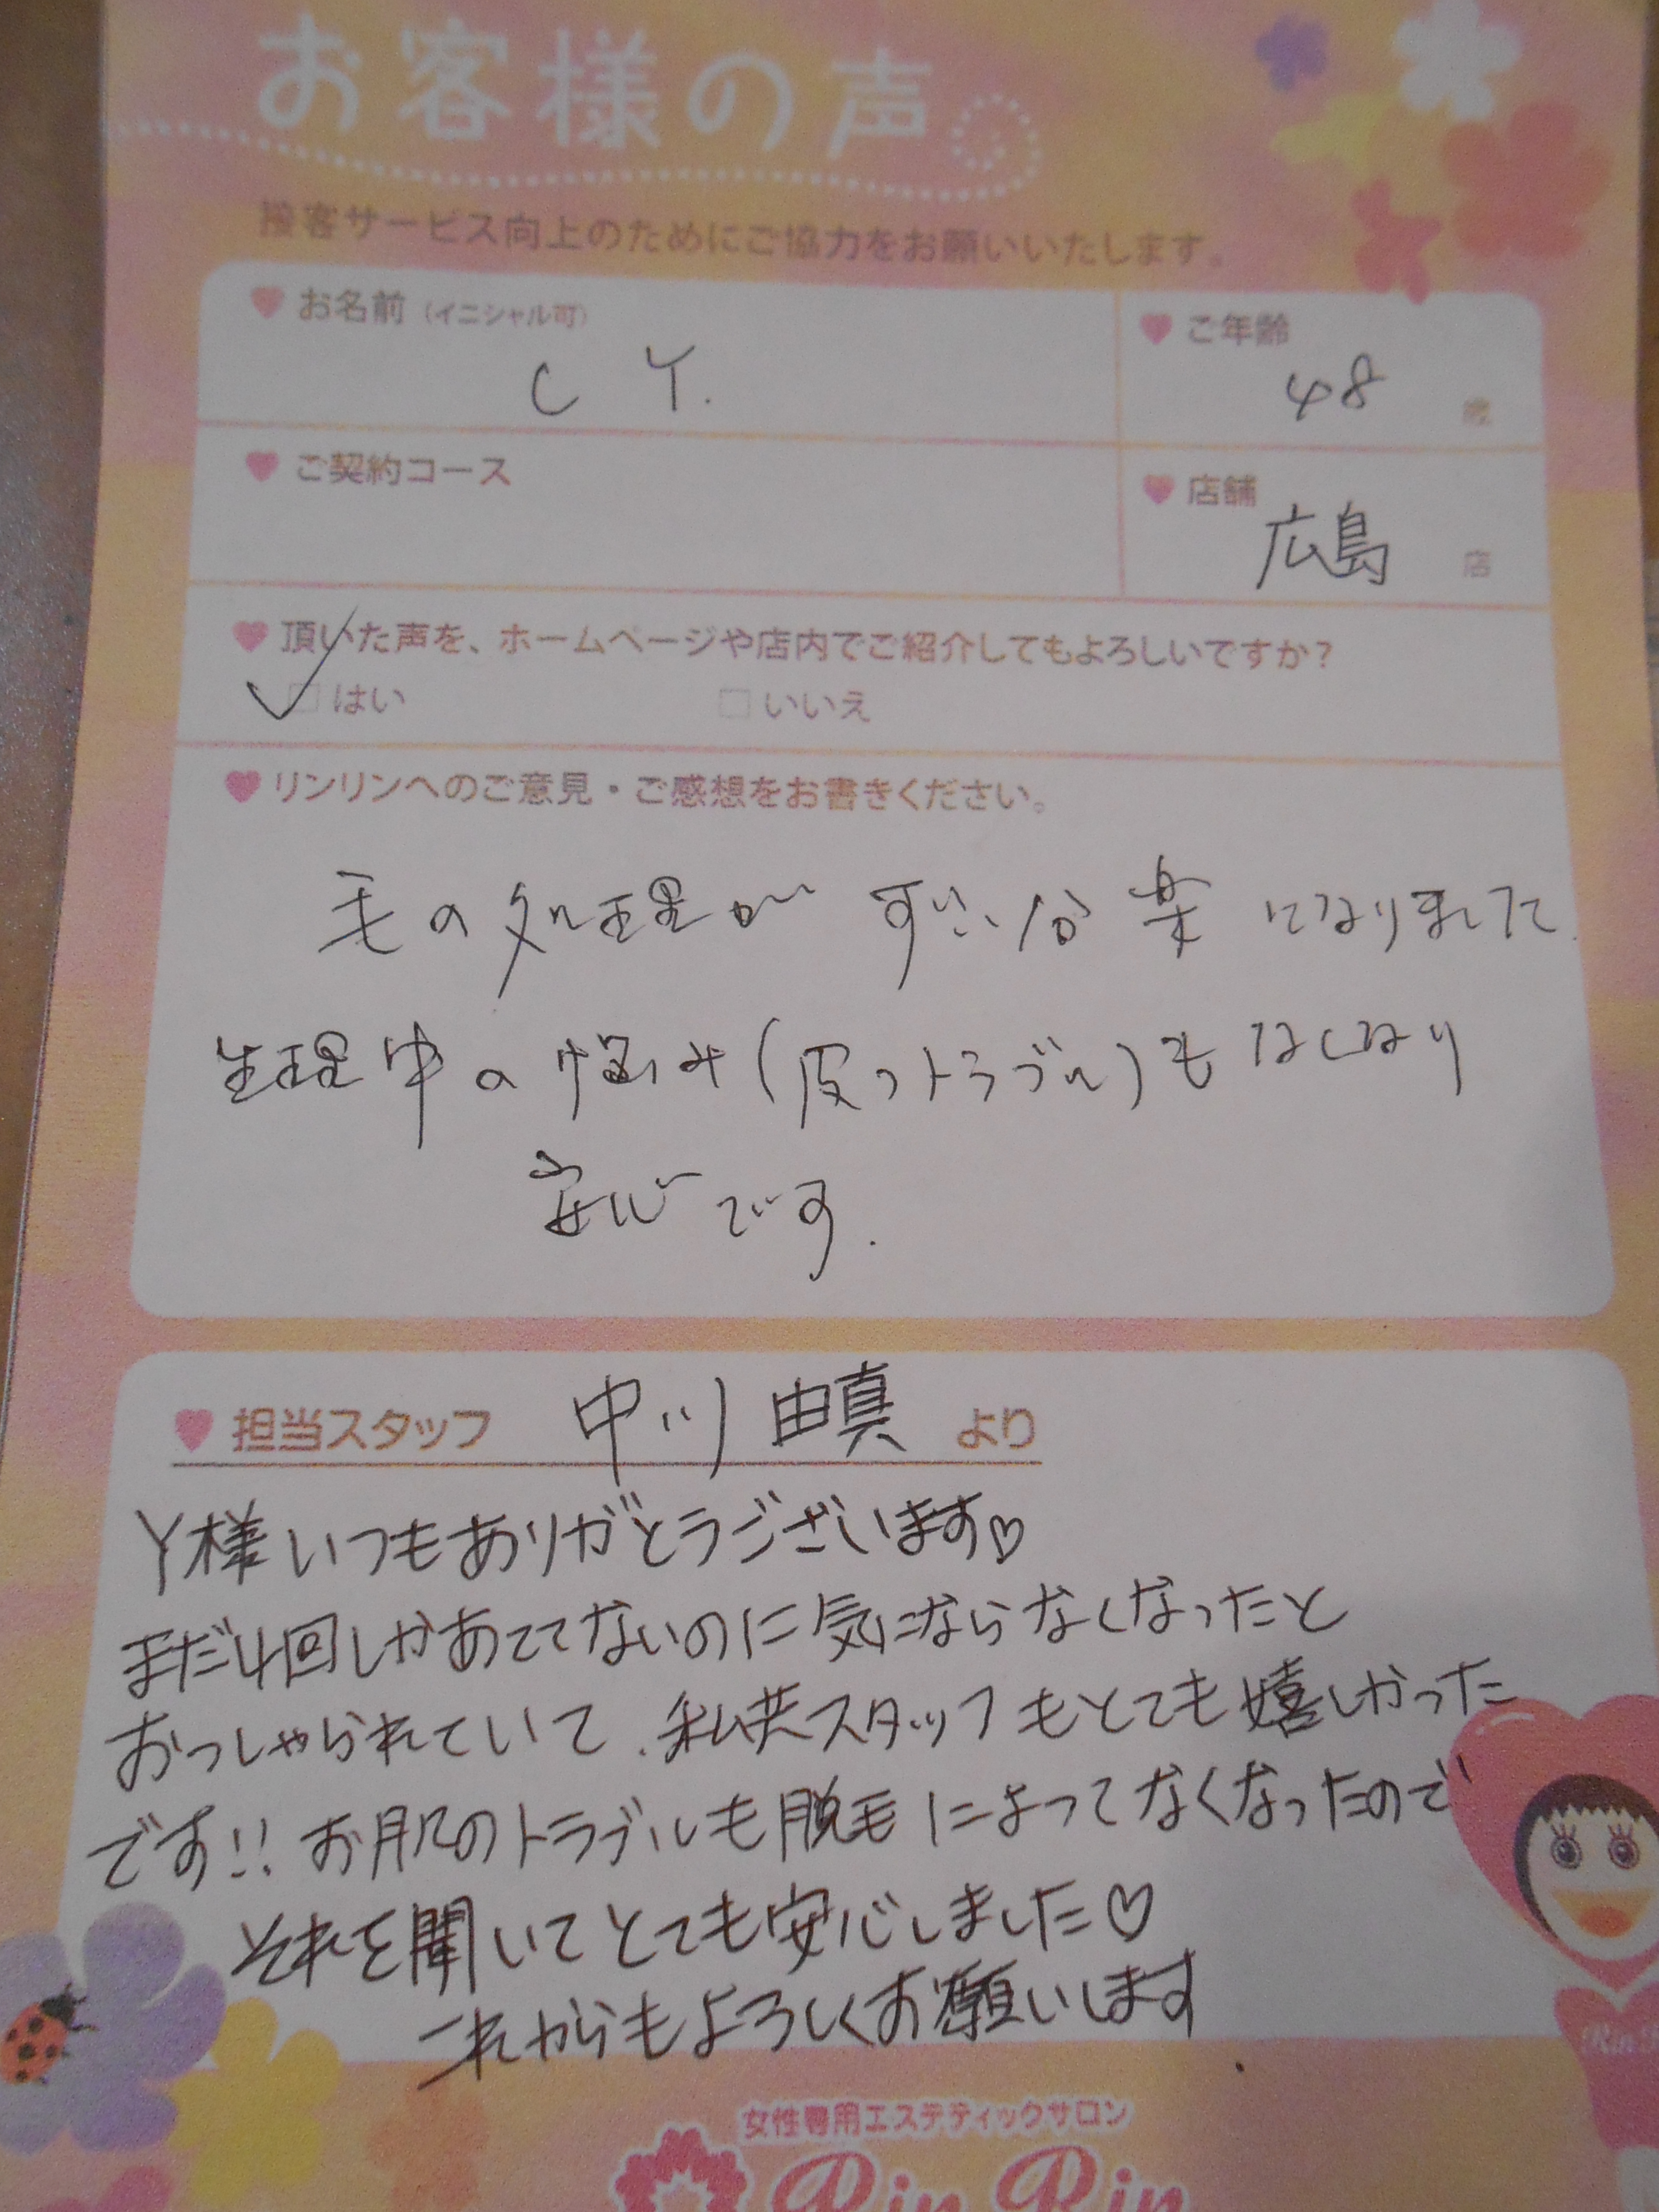 お客様の声
接客サービス向上のためにご協力をお願いいたします。
お名前（イニシャル可）
C Y.
ご年齢
48 歳
ご契約コース
店舗
広島 店
頂いた声を、ホームページや店内でご紹介してもよろしいですか？
はい いいえ
リンリンへのご意見・ご感想をお書きください。
毛の処理が ずい分 楽 になりました.
生理中の悩み(皮フトラブル)も なくなり
安心です.
担当スタッフ 中川 由真 より
Y様いつもありがとうございます♡
まだ4回しかあててないのに気にならなくなったと
おっしゃられていて、私共スタッフもとても嬉しかった
です!! お肌のトラブルも脱毛によってなくなったので
それを聞いてとても安心しました♡
これからもよろしくお願いします.
女性専用エステティックサロン
Rin Rin